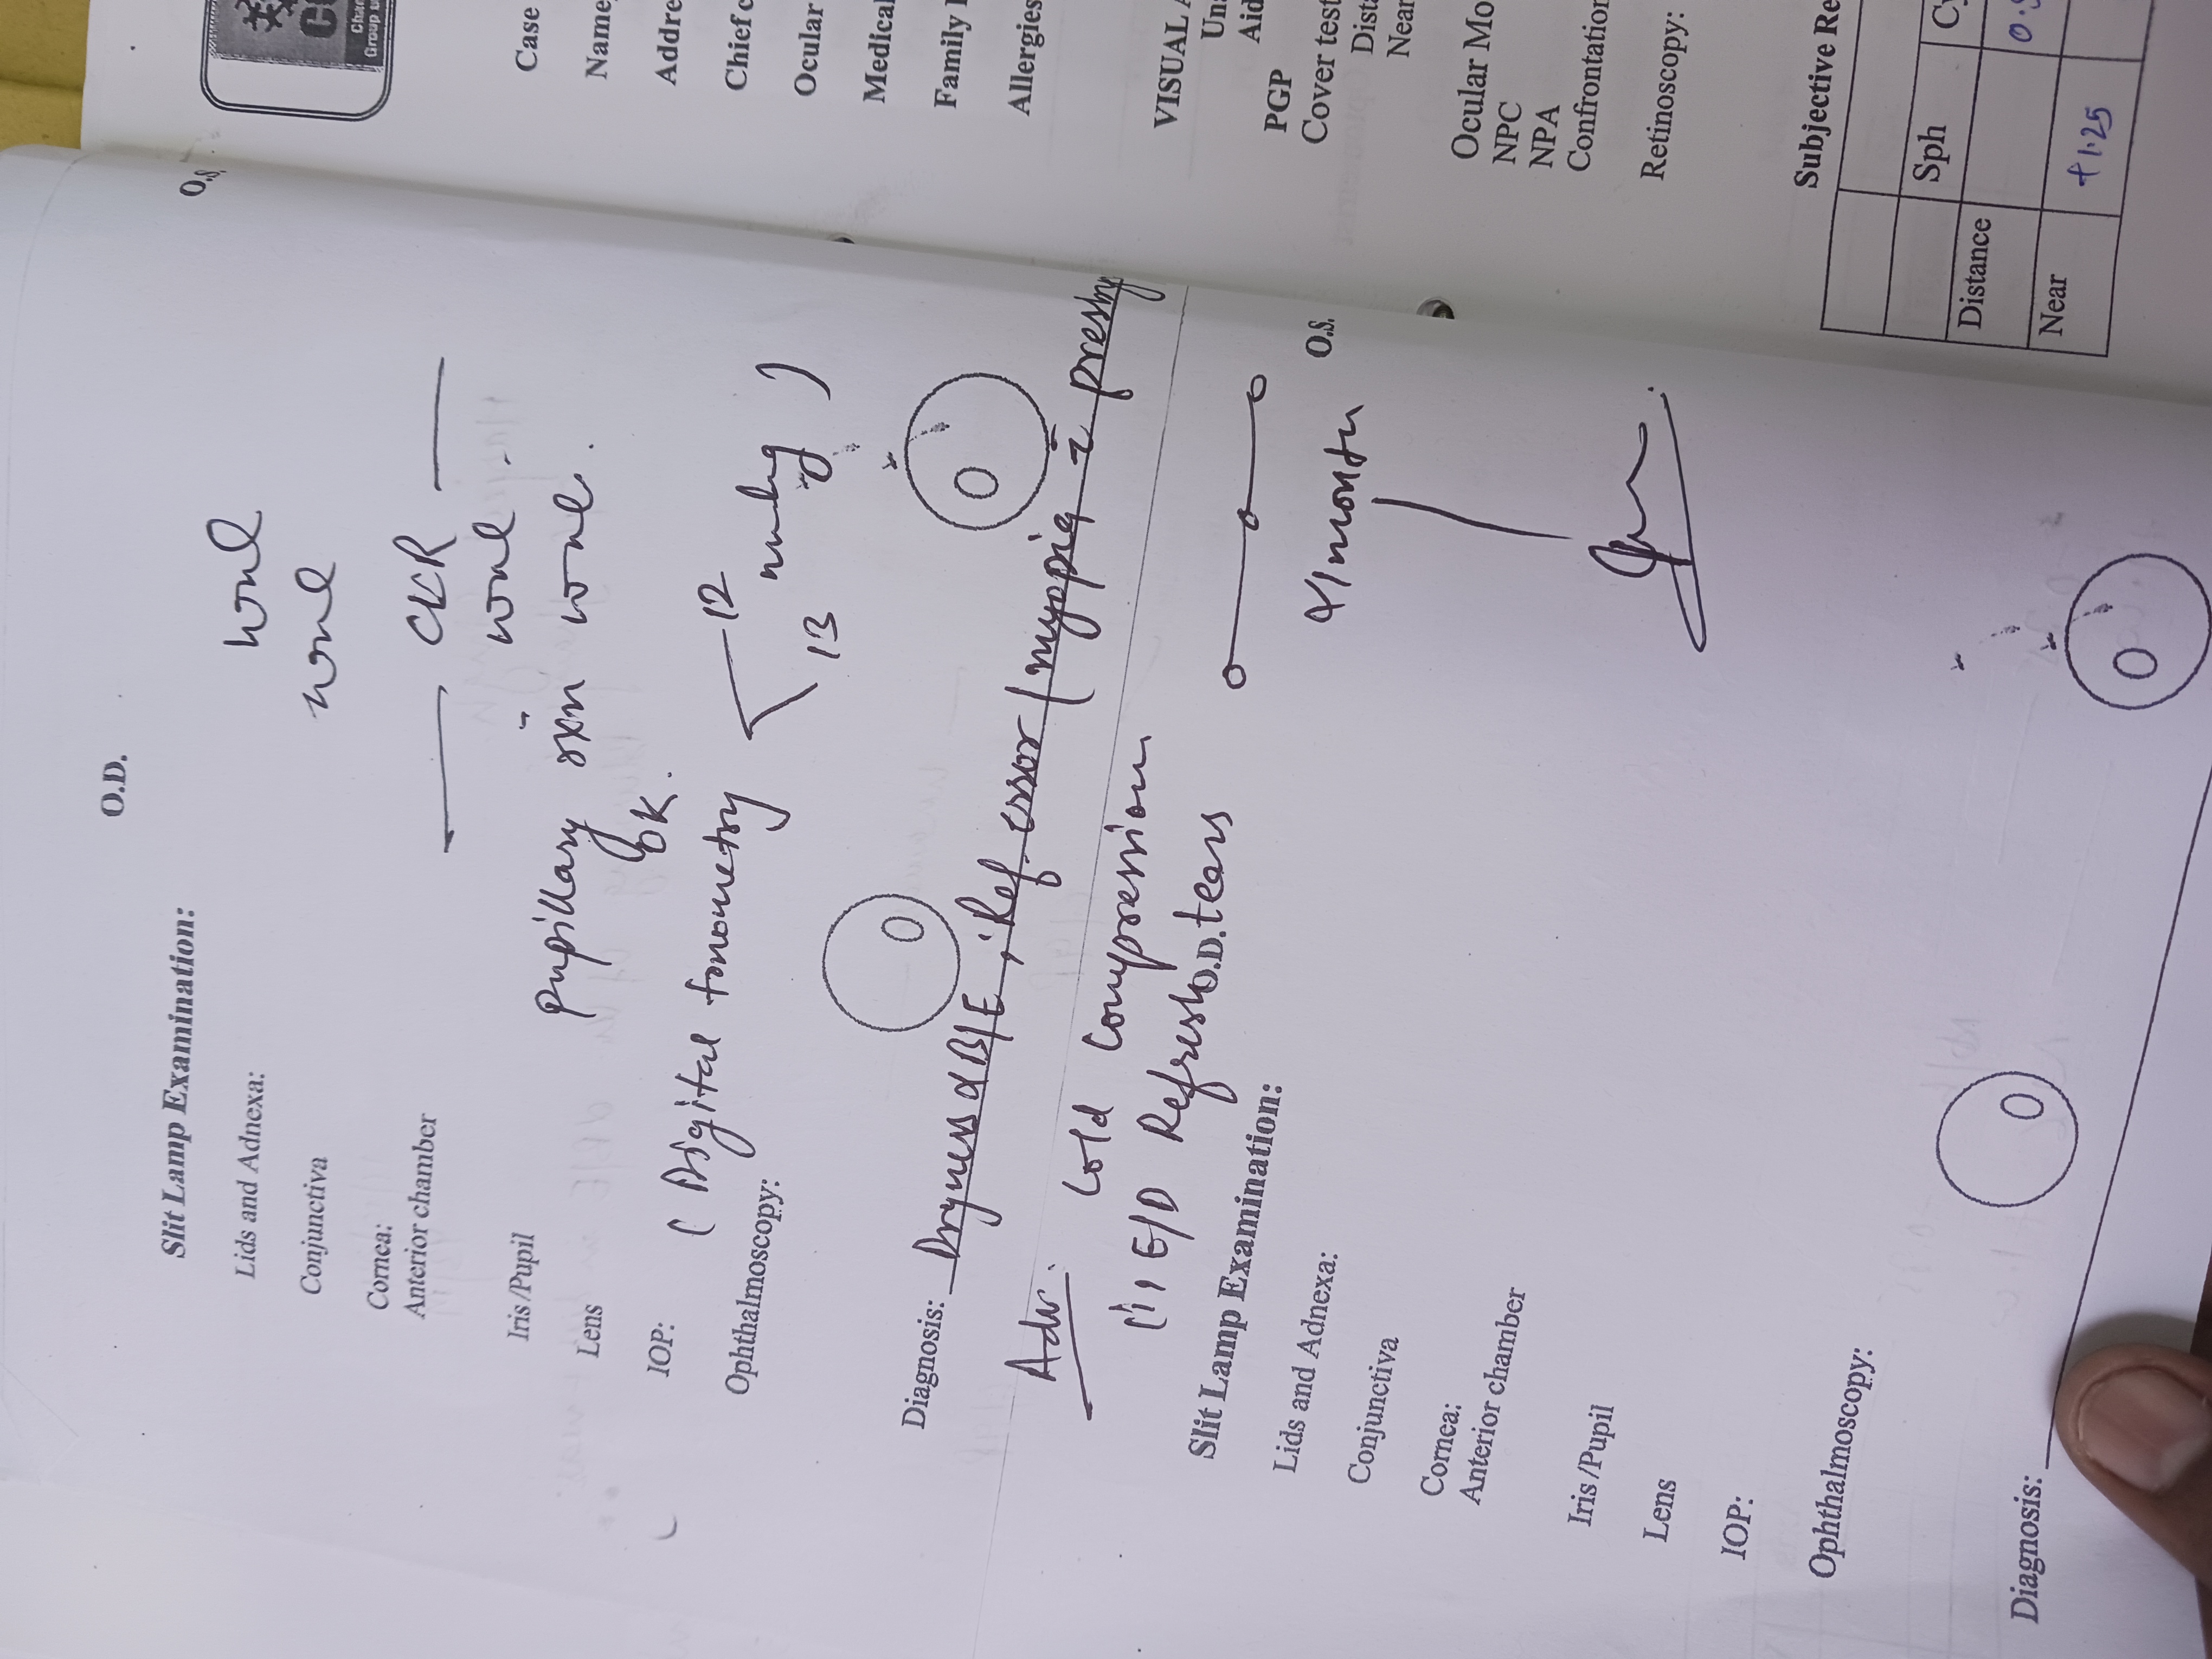 O.D.
O.S.
Slit Lamp Examination:
Lids and Adnexa: wnl
Conjunctiva wnl
Cornea:
Anterior chamber
Iris /Pupil pupillary rxn wnl.
Lens OK.
IOP: ( Digital tonometry 12
13 mmhg )
Ophthalmoscopy:
Diagnosis: Dryness B/E ; Ref. error / myopia c̄ presby
Adv. Cold Compression
(1) E/D Refresh tears
O.D.
x 1 month
O.S.
Slit Lamp Examination:
Lids and Adnexa:
Conjunctiva
Cornea:
Anterior chamber
Iris /Pupil
Lens
IOP:
Ophthalmoscopy:
Diagnosis:
Group
Case
Name
Addre
Chief c
Ocular
Medical
Family
Allergies
VISUAL A
Un
Aid
PGP
Cover test
Dist
Near
Ocular Mo
NPC
NPA
Confrontation
Retinoscopy:
Subjective Re
Sph Cy
Distance
Near +1.25